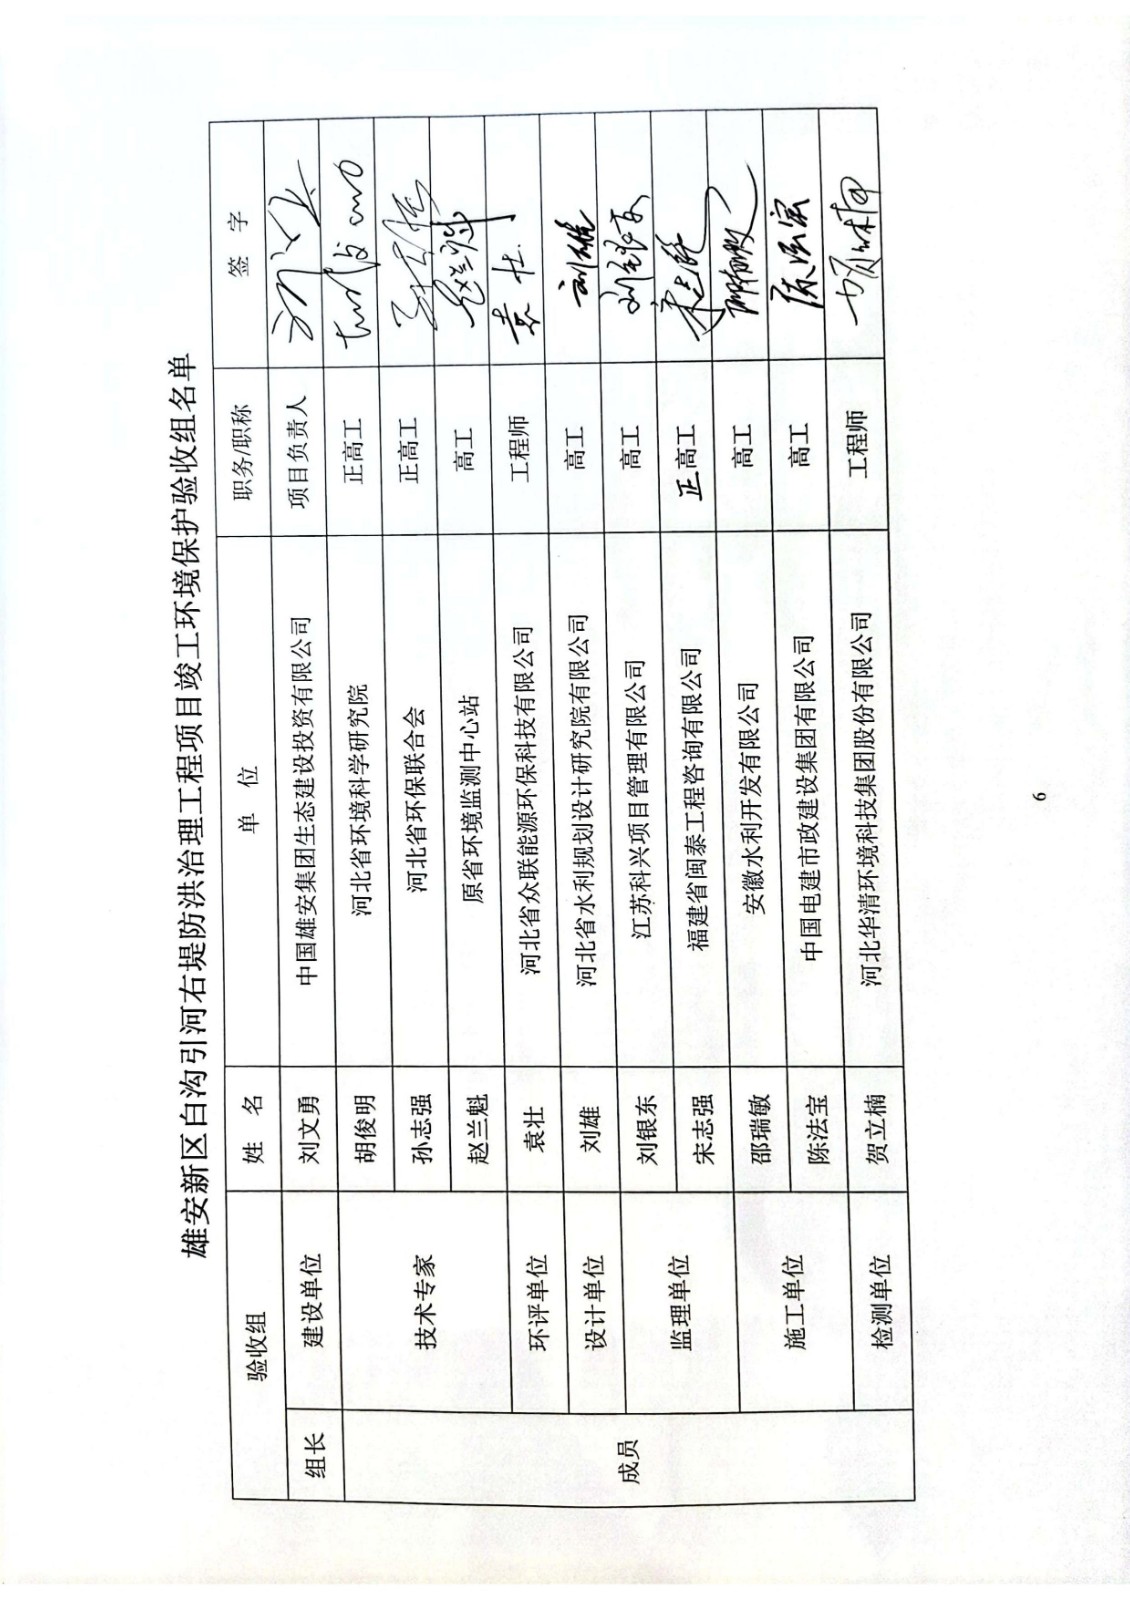 雄安新区白沟引河右堤防洪治理工程项目竣工环境保护验收组名单
验收组 姓 名 单 位 职务/职称 签 字
组长 建设单位 刘文勇 中国雄安集团生态建设投资有限公司 项目负责人
成员 技术专家 胡俊明 河北省环境科学研究院 正高工
孙志强 河北省环保联合会 正高工
赵兰魁 原省环境监测中心站 高工
环评单位 袁壮 河北省众联能源环保科技有限公司 工程师 袁壮
设计单位 刘雄 河北省水利规划设计研究院有限公司 高工 刘雄
监理单位 刘银东 江苏科兴项目管理有限公司 高工
宋志强 福建省闽泰工程咨询有限公司 正高工
施工单位 邵瑞敏 安徽水利开发有限公司 高工
陈法宝 中国电建市政建设集团有限公司 高工
检测单位 贺立楠 河北华清环境科技集团股份有限公司 工程师
6